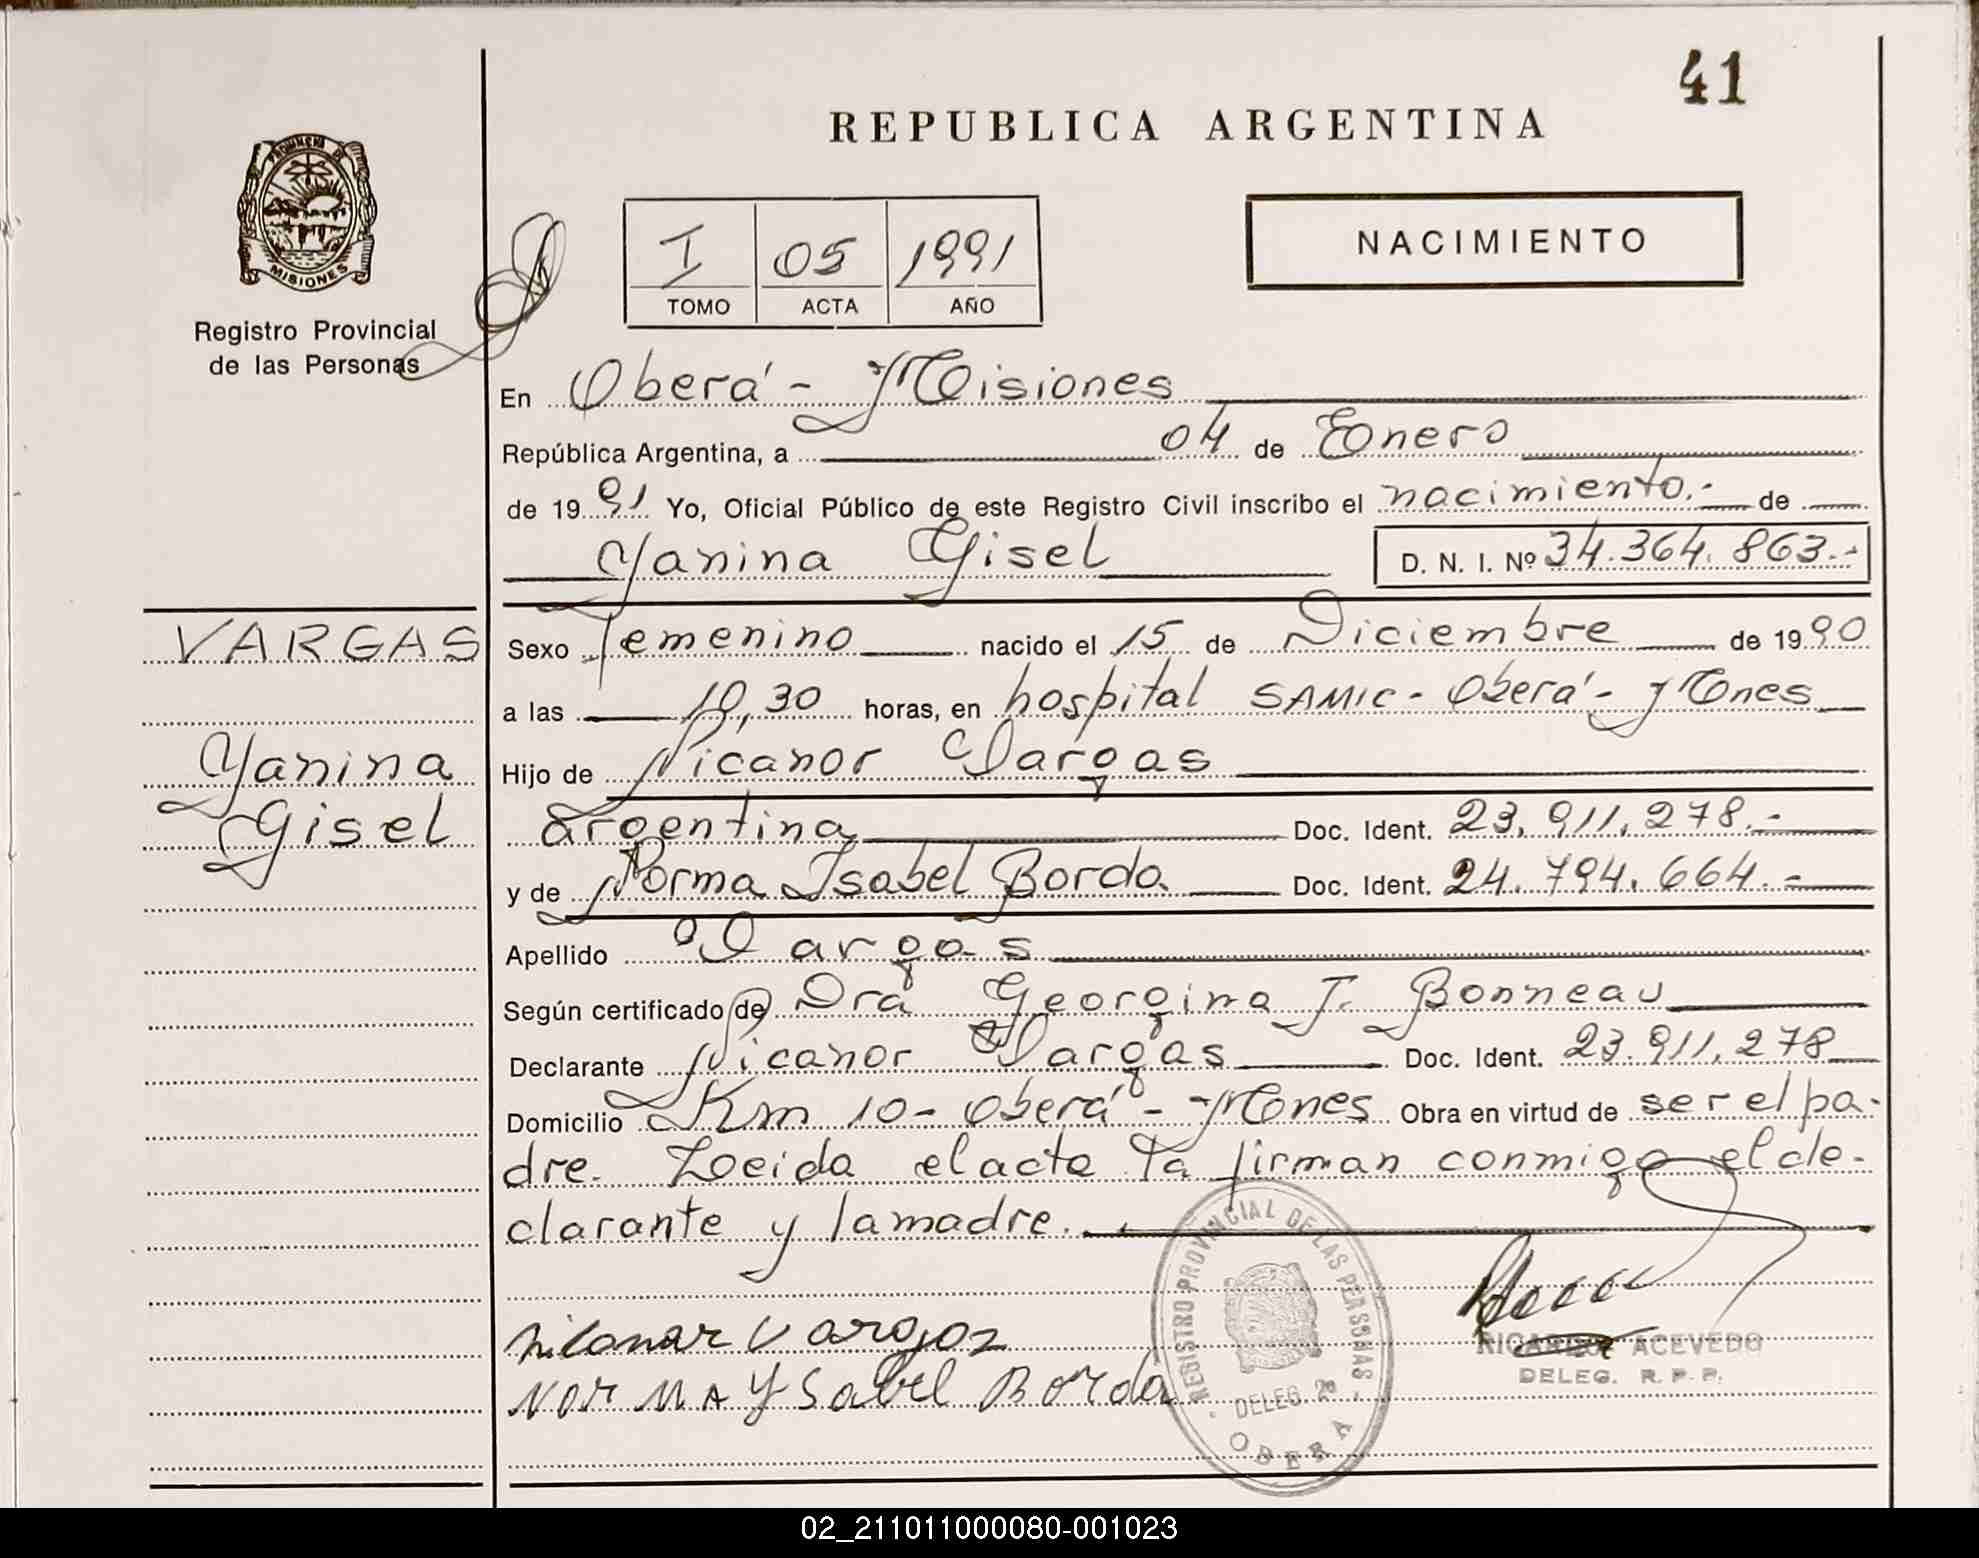 41
REPUBLICA ARGENTINA
PROVINCIA DE
MISIONES
Registro Provincial
de las Personas
I 05 1991
TOMO ACTA AÑO
NACIMIENTO
En Oberá - Misiones
República Argentina, a 04 de Enero
de 1991 Yo, Oficial Público de este Registro Civil inscribo el nacimiento.- de
Yanina Gisel D. N. I. Nº 34.364.863.-
VARGAS
Yanina
Gisel
Sexo Femenino nacido el 15 de Diciembre de 1990
a las 10,30 horas, en hospital SAMIC - Oberá - Mnes
Hijo de Nicanor Vargas
argentina Doc. Ident. 23.911.278.-
y de Norma Isabel Borda Doc. Ident. 24.794.664.-
Apellido Vargas
Según certificado de Dra Georgina J. Bonneau
Declarante Nicanor Vargas Doc. Ident. 23.911.278
Domicilio Km 10 - Oberá - Mnes Obra en virtud de ser el pa-
dre. Leida el acta la firman conmigo el de-
clarante y la madre.
nicanor Vargas
NORMA YSabel Borda
REGISTRO PROVINCIAL DE LAS PERSONAS
DELEG. 2ª
OBERA
RICARDO ACEVEDO
DELEG. R. P. P.
02_211011000080-001023